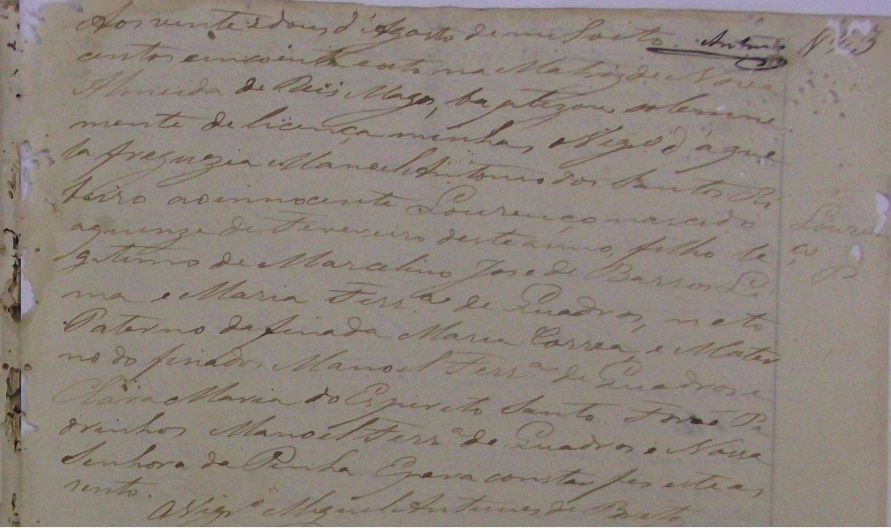 Aos vente e dous d'Agosto de mil oito
centos cincoenta e oito na Matriz de Nova
Almeida de Reis Magos, baptizou solemne
mente de licença minha o Vigrº d'aque
la freguezia Manoel Antonio dos Santos Ri
beiro ao innocente Lourenço nascido
a quinze de Fevereiro deste anno, filho le
gitimo de Marcelino Jose de Barros Li
ma e Maria Ferrª de Quadros, neto
Paterno da finada Maria Correa, e Mater
no do finado Manoel Ferrª de Quadros e
Clara Maria do Espirito Santo. Forão Pa
drinhos Manoel Ferrª de Quadros e Nossa
Senhora da Penha E para constar fis este as
sento.
O Vigrº Miguel Antunes de Brito
Antunes
Louren
ço
P